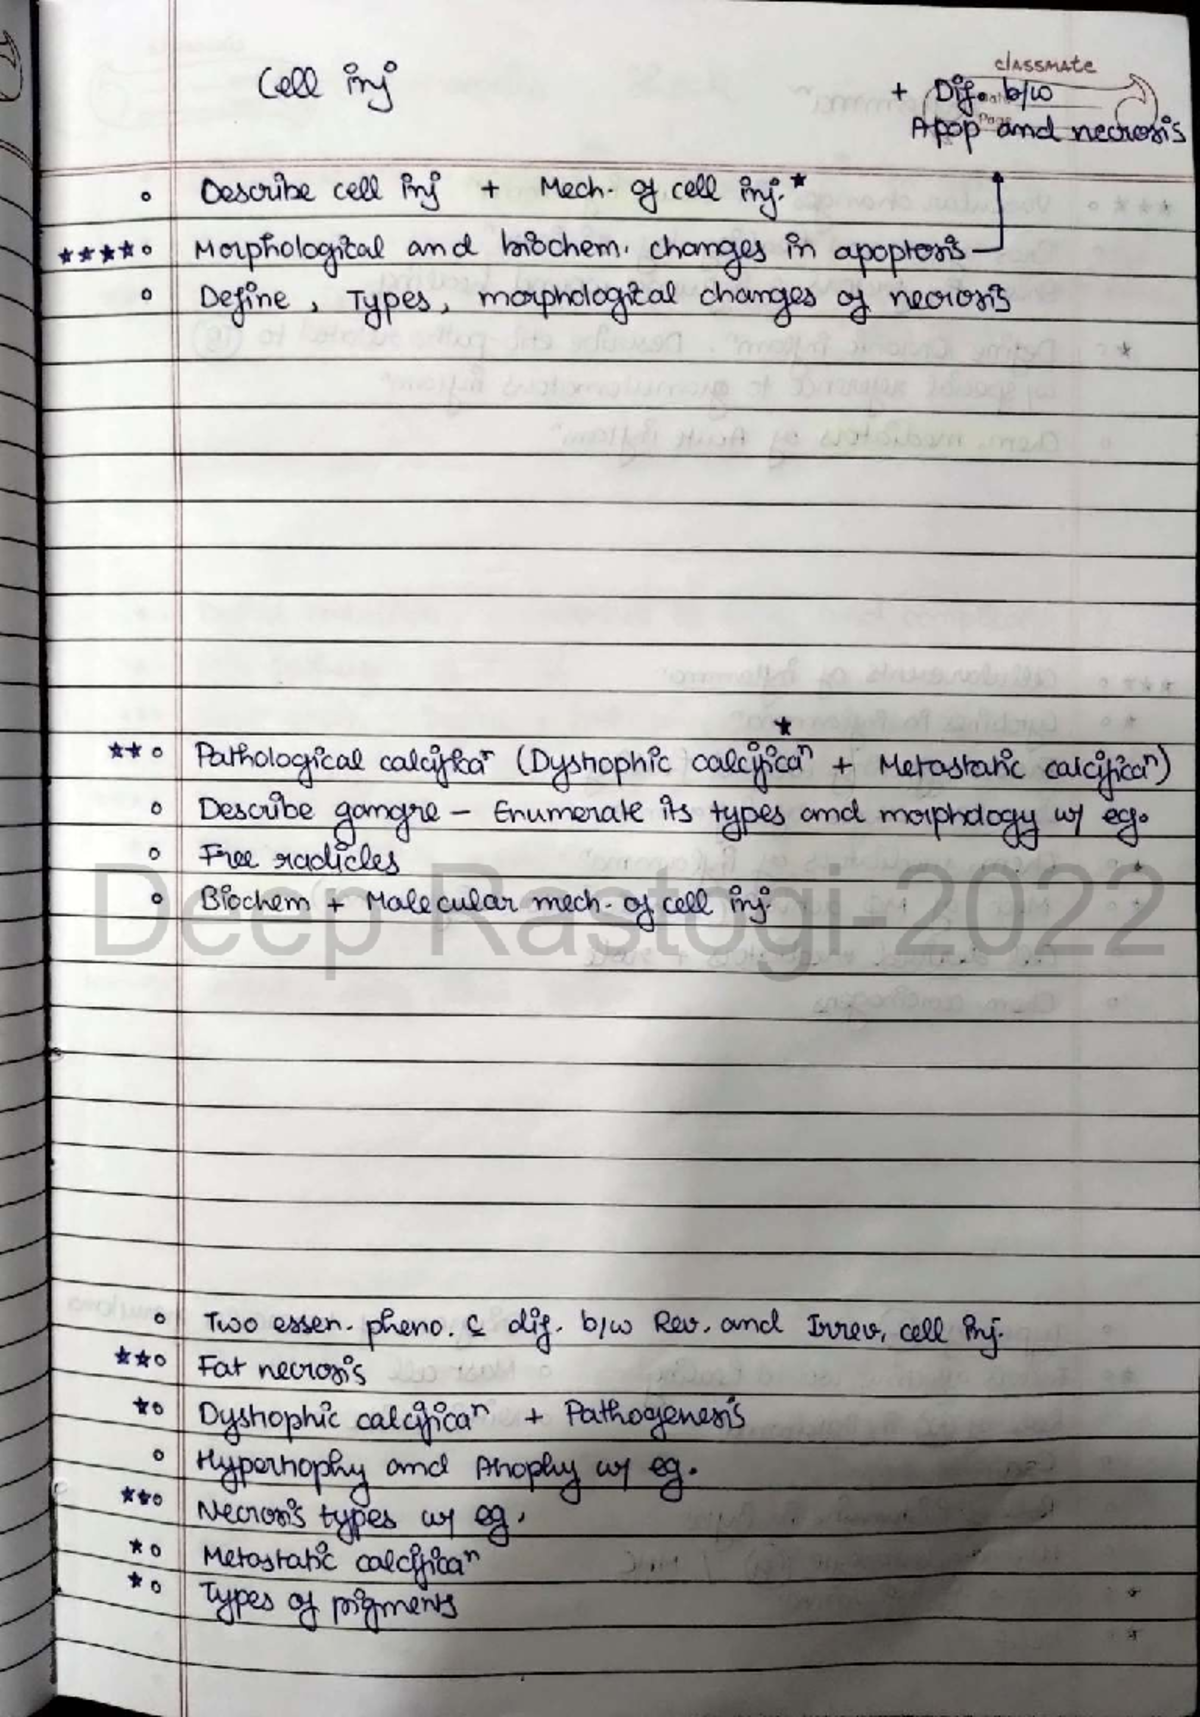 Cell inj
classmate
+ Dif. b/w
Page
Apop and necrosis
Describe cell inj + Mech. of cell inj.*
****o Morphological and biochem. changes in apoptosis
Define, Types, morphological changes of necrosis
*
**o Pathological calcificaⁿ (Dyshophic calcificaⁿ + Metastatic calcificaⁿ)
Describe gangre – Enumerate its types and morphology w/ eg.
Free radicles
Biochem + Malecular mech. of cell inj.
Deep Rastogi-2022
Two essen. pheno. c̲ dif. b/w Rev. and Irrev. cell inj.
**o Fat necrosis
*o Dyshophic calcificaⁿ + Pathogenesis
Hyperhophy and Ahophy w/ eg.
**o Necrosis types w/ eg.
*o Metastatic calcificaⁿ
*o Types of pigments